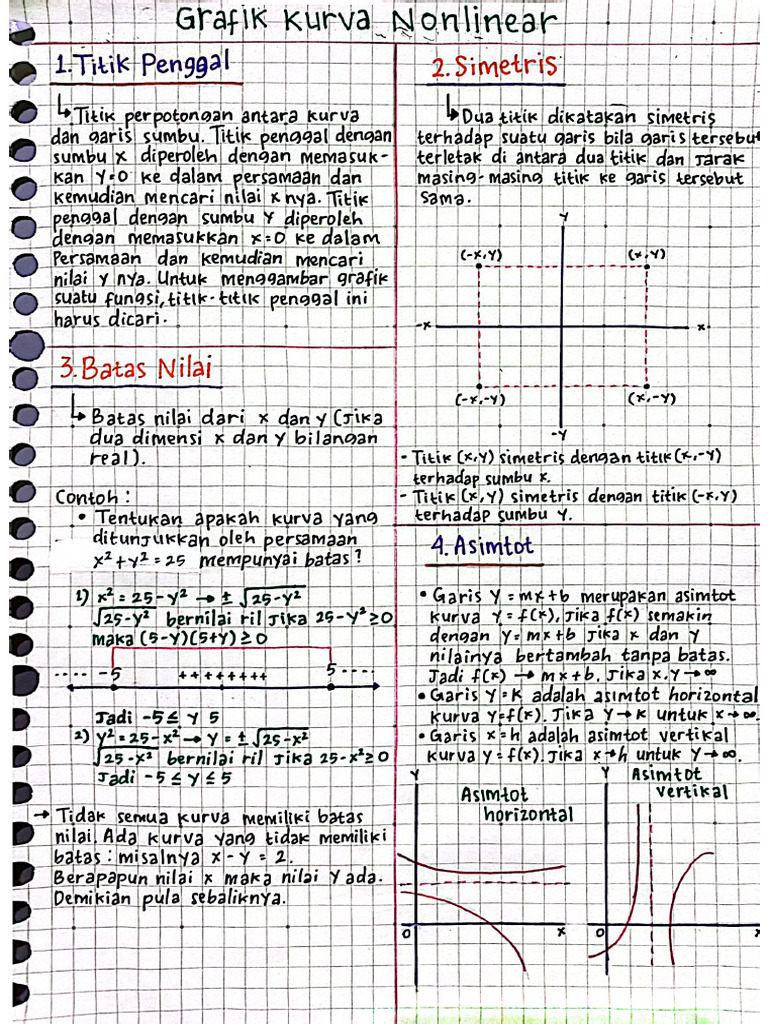 Grafik Kurva Nonlinear
1. Titik Penggal
↳ Titik perpotongan antara kurva
dan garis sumbu. Titik penggal dengan
sumbu x diperoleh dengan memasuk-
kan y=0 ke dalam persamaan dan
kemudian mencari nilai x nya. Titik
penggal dengan sumbu y diperoleh
dengan memasukkan x=0 ke dalam
Persamaan dan kemudian mencari
nilai y nya. Untuk menggambar grafik
suatu fungsi, titik-titik penggal ini
harus dicari.
2. Simetris
↳ Dua titik dikatakan simetris
terhadap suatu garis bila garis tersebut
terletak di antara dua titik dan Jarak
masing-masing titik ke garis tersebut
Sama.
Y
(-x,y) (x,y)
-x x
(-x,-y) (x,-y)
-Y
- Titik (x,y) simetris dengan titik (x,-y)
terhadap sumbu x.
- Titik (x,y) simetris dengan titik (-x,y)
terhadap sumbu y.
3. Batas Nilai
↳ Batas nilai dari x dan y (Jika
dua dimensi x dan y bilangan
real).
Contoh :
• Tentukan apakah kurva yang
ditunjukkan oleh persamaan
x² + y² = 25 mempunyai batas?
1) x² = 25 - y² → ± √25-y²
√25-y² bernilai ril Jika 25-y² ≥ 0
maka (5-y)(5+y) ≥ 0
.... -5 ++++++++ 5 ....
Jadi -5 ≤ y 5
2) y² = 25 - x² → y = ± √25-x²
√25-x² bernilai ril Jika 25-x² ≥ 0
Jadi -5 ≤ y ≤ 5
→ Tidak semua kurva memiliki batas
nilai. Ada kurva yang tidak memiliki
batas : misalnya x - y = 2.
Berapapun nilai x maka nilai y ada.
Demikian pula sebaliknya.
4. Asimtot
• Garis y = mx + b merupakan asimtot
kurva y = f(x), Jika f(x) semakin
dengan y = mx + b Jika x dan y
nilainya bertambah tanpa batas.
Jadi f(x) → mx + b, Jika x,y → ∞
• Garis y = k adalah asimtot horizontal
kurva y = f(x). Jika y → k untuk x → ∞.
• Garis x = h adalah asimtot vertikal
kurva y = f(x). Jika x → h untuk y → ∞.
Y
Asimtot
horizontal
0 x
Y
Asimtot
vertikal
0 x